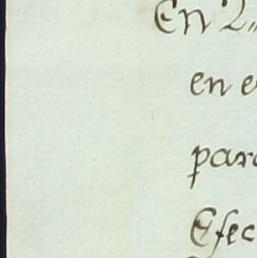 En 2
en e
para
Efec